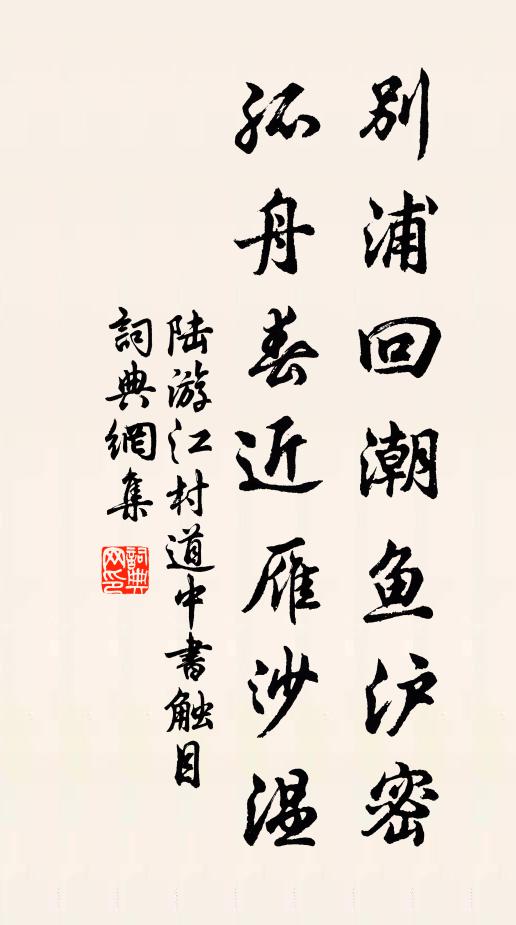 别浦回潮鱼沪密
孤舟春近雁沙温
陆游江村道中书触目
詞典網集
詞典网印